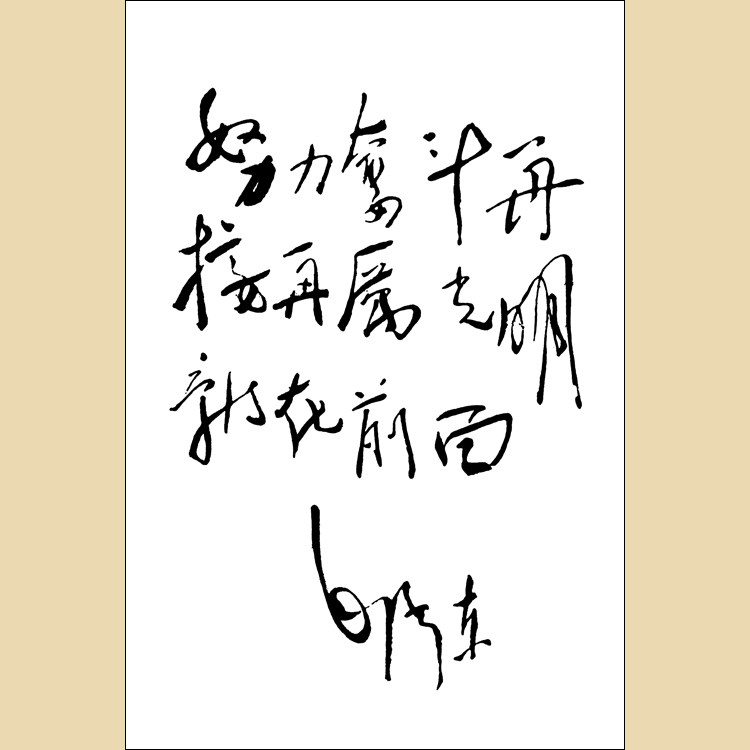 努力奋斗再
接再厉光明
就在前面
毛泽东